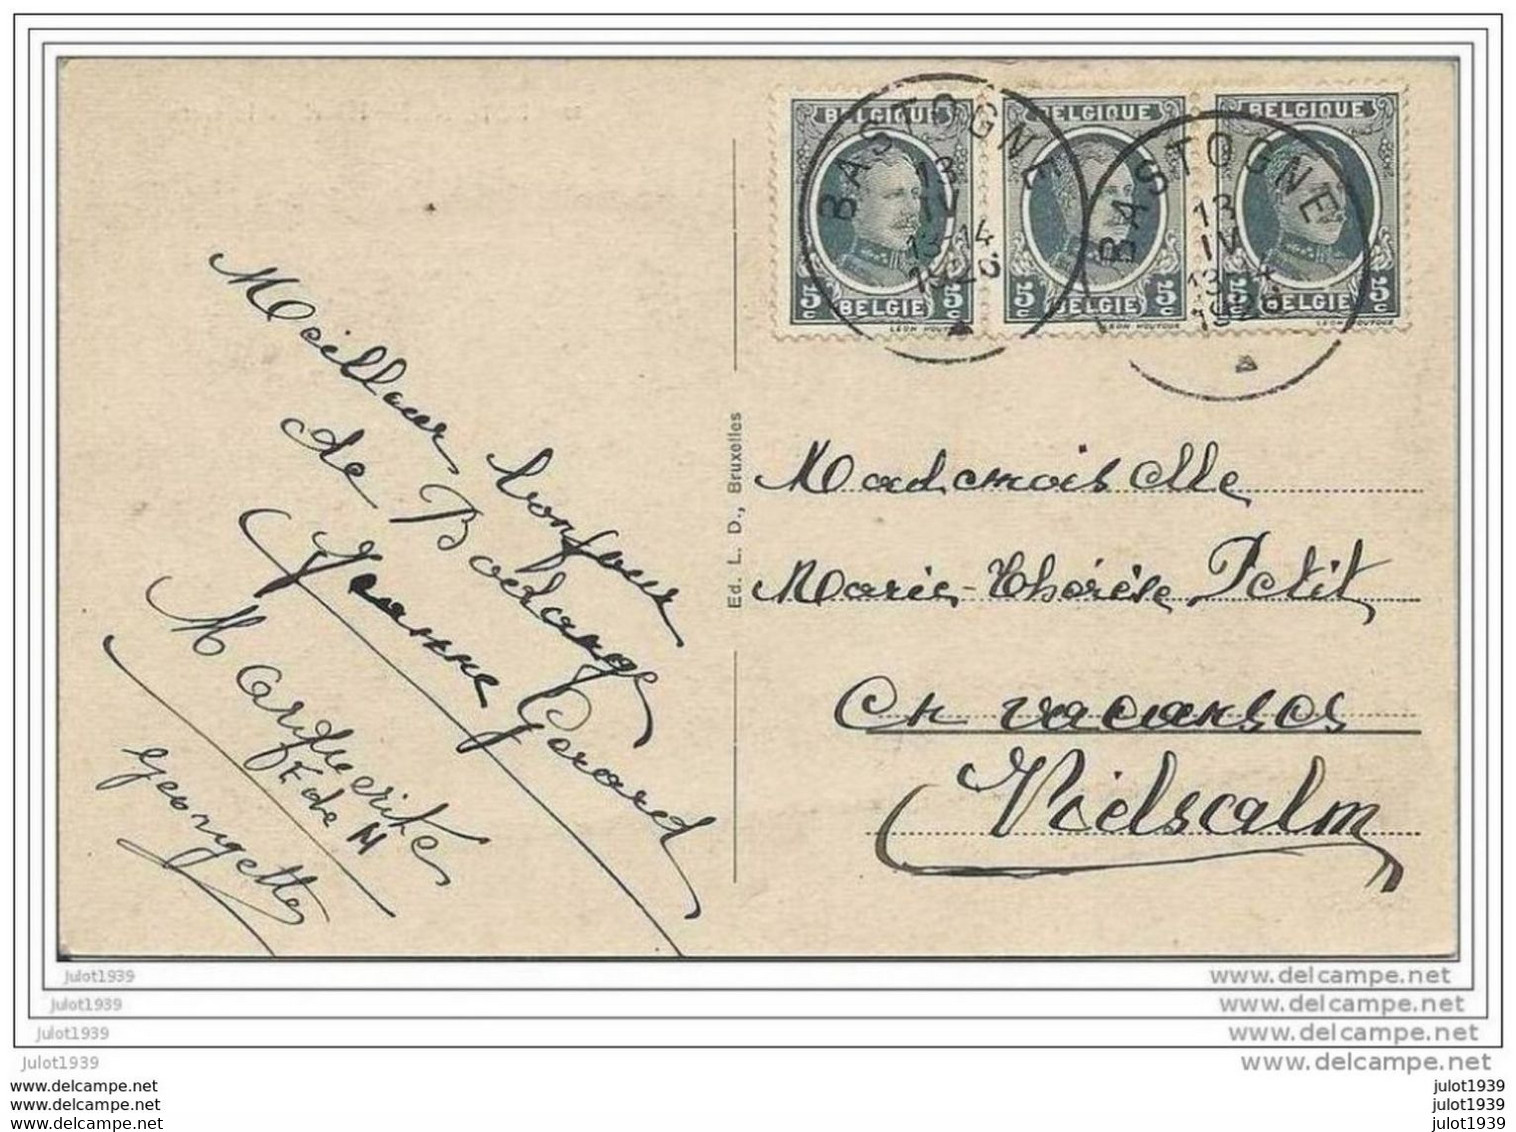 BELGIQUE BELGIQUE BELGIQUE
BASTOGNE BASTOGNE
13 13
IV IV
13-14 13-14
1926 1926
5c BELGIE 5c 5c BELGIE 5c 5c BELGIE 5c
LEON HOUYOUX
Meilleur bonjour
de Bodange
Jeanne Gerard
Marguerite
F de M
Georgette
Ed. L. D., Bruxelles
Mademoiselle
Marie-Thérèse Petit
En vacances
Vielscalm
julot1939 www.delcampe.net
julot1939 www.delcampe.net
julot1939 www.delcampe.net
julot1939 www.delcampe.net
www.delcampe.net julot1939
www.delcampe.net julot1939
www.delcampe.net julot1939